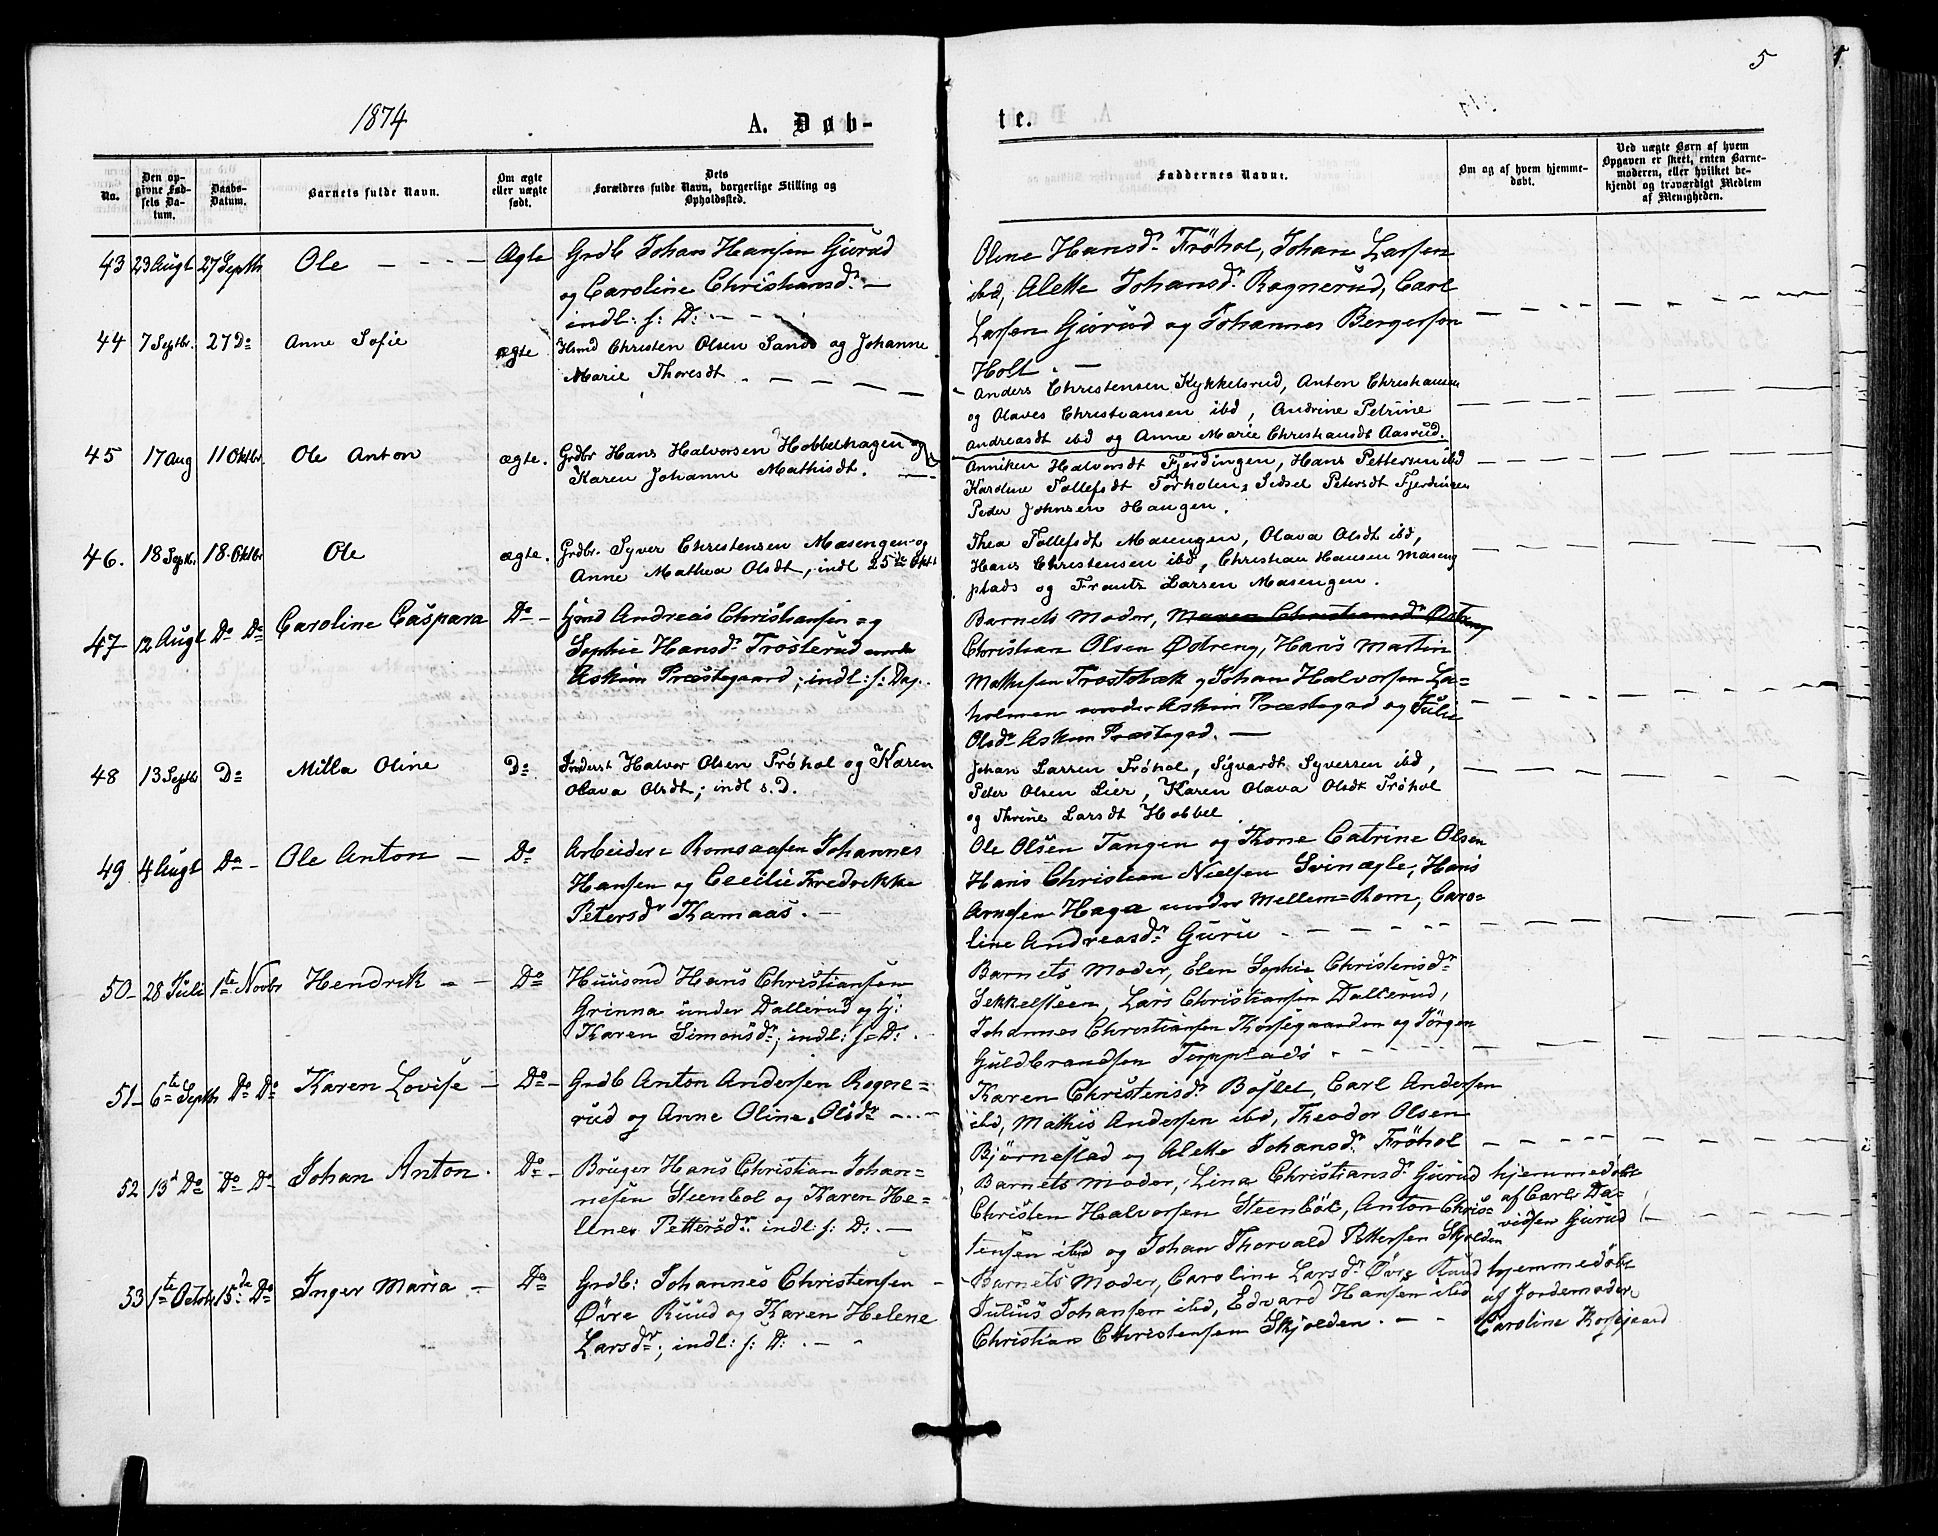 5
1874
A. Døb-
te.
No.
Den op-
givne Fød-
sels Da-
tum.
Daabs-
Datum.
Barnets fulde Navn.
Om ægte
eller uægte
født.
Dets
Forældres fulde Navn, borgerlige Stilling og
Opholdssted.
Faddernes Navne.
Om og af hvem hjemme-
døbt.
Ved uægte Børn af hvem
Opgaven er skeet, enten Barne-
moderen, eller hvilket be-
kjendt og troværdigt Medlem
af Menigheden.
43 23 Augt 27 Septbr Ole Ægte Grdb Johan Hansen Gjurud
og Caroline Christiansdr
indl: s: D:
Oline Hansdr Frøhol, Johan Larsen
ibd, Alette Johansdr Rognerud, Carl
Larsen Gjurud og Johannes Bergersen
Holt.
44 7 Septbr. 27 Do Anne Sofie ægte Hsmd Christen Olsen Sand og Johanne
Marie Thoresdt
Anders Christensen Kykkelsrud, Anton Christiansen
og Olaves Christiansen ibd, Andrine Petrine
Andreasdt ibd og Anne Marie Christiansdt Aasrud.
45 17 Aug 11 Oktbr. Ole Anton ægte. Grdbr Hans Halvorsen Hobbelhagen og
Karen Johanne Mathisdt.
Anniken Halvorsdt Fjerdingen, Hans Pettersen ibd
Karoline Tollefsdt Torholen, Sidsel Petersdt Fjerdingen
Peder Johnsen Haugen.
46. 18 Septbr. 18. Oktbr Ole ægte. Grdbr. Syver Christensen Masengen og
Anne Mathea Olsdt, indl 25de Oktb
Thea Tollefsdt Masengen, Olava Olsdt ibd,
Hans Christensen ibd, Christian Hansen Maseng
plads og Frantz Larsen Masengen.
47 12 Augt Do Do Caroline Caspara Do Hsmd Andreas Christiansen og
Sophie Hansdr Trøsterud under
Askim Præstegaard; indl: s: Dag.
Barnets Moder, Maren Christiansdr Østreng
Christian Olsen Østreng, Hans Martin
Mathisen Trøstbæk og Johan Halvorsen La=
holmen under Askim Præstegrd og Julie
Olsdr Askim Præstegrd.
48 13 Septbr Do Milla Oline Do Inderst Halvor Olsen Frøhol og Karen
Olava Olsdt; indl s. D.
Johan Larsen Frøhol, Sigvardt Syversen ibd,
Peter Olsen Lier, Karen Olava Olsdt Frøhol
og Thrine Larsdt Hobbel
49 4 Augt Do Ole Anton Do Arbeider = Romsaasen Johannes
Hansen og Cecilie Fredrikke
Petersdr Kamaas.
Ole Olsen Tangen og Kone Catrine Olsen
Hans Christian Nielsen Svinægle, Hans
Arnesen Haga under Mellem=Rom, Caro=
line Andreasdr Guru
50 28 Juli 1te Novbr Hendrik Do Huusmd Hans Christiansen
Grinna under Dallerud og Hj:
Karen Simonsdr; indl: s: D:
Barnets Moder, Elen Sophie Christensdr
Sekkelsteen, Lars Christiansen Dallerud,
Johannes Christiansen Korsegaarden og Jørgen
Guldbrandsen Torpplads
51 6te Septbr Do Do Karen Lovise Do Grdb Anton Andersen Rogne=
rud og Anne Oline Olsdr
Karen Christensdr Boslet, Carl Andersen
ibd, Mathis Andersen ibd, Theodor Olsen
Bjørnestad og Alette Johansdr Frøhol
52 13d Do Do Do Johan Anton. Do Bruger Hans Christian Johan=
nesen Steenbøl og Karen He=
lene Pettersdr. indl: s: D:
Barnets Moder, Lina Christiansdr Gjurud
Christen Halvorsen Steenbøl, Anton Chris=
tensen ibd og Johan Thorvald Pettersen Skjolden
hjemmedøbt
af Carl Da=
vidsen Gjurud
53 1te Octobr 15de Do Inger Maria Do Grdb: Johannes Christensen
Øvre Ruud og Karen Helene
Larsdr; indl: s: D:
Barnets Moder, Caroline Larsdr Øvre Ruud
Julius Johansen ibd, Edvard Hansen ibd
Christian Christensen Skjolden.
hjemmedøbt
af Jordemoder
Caroline Korsegaard